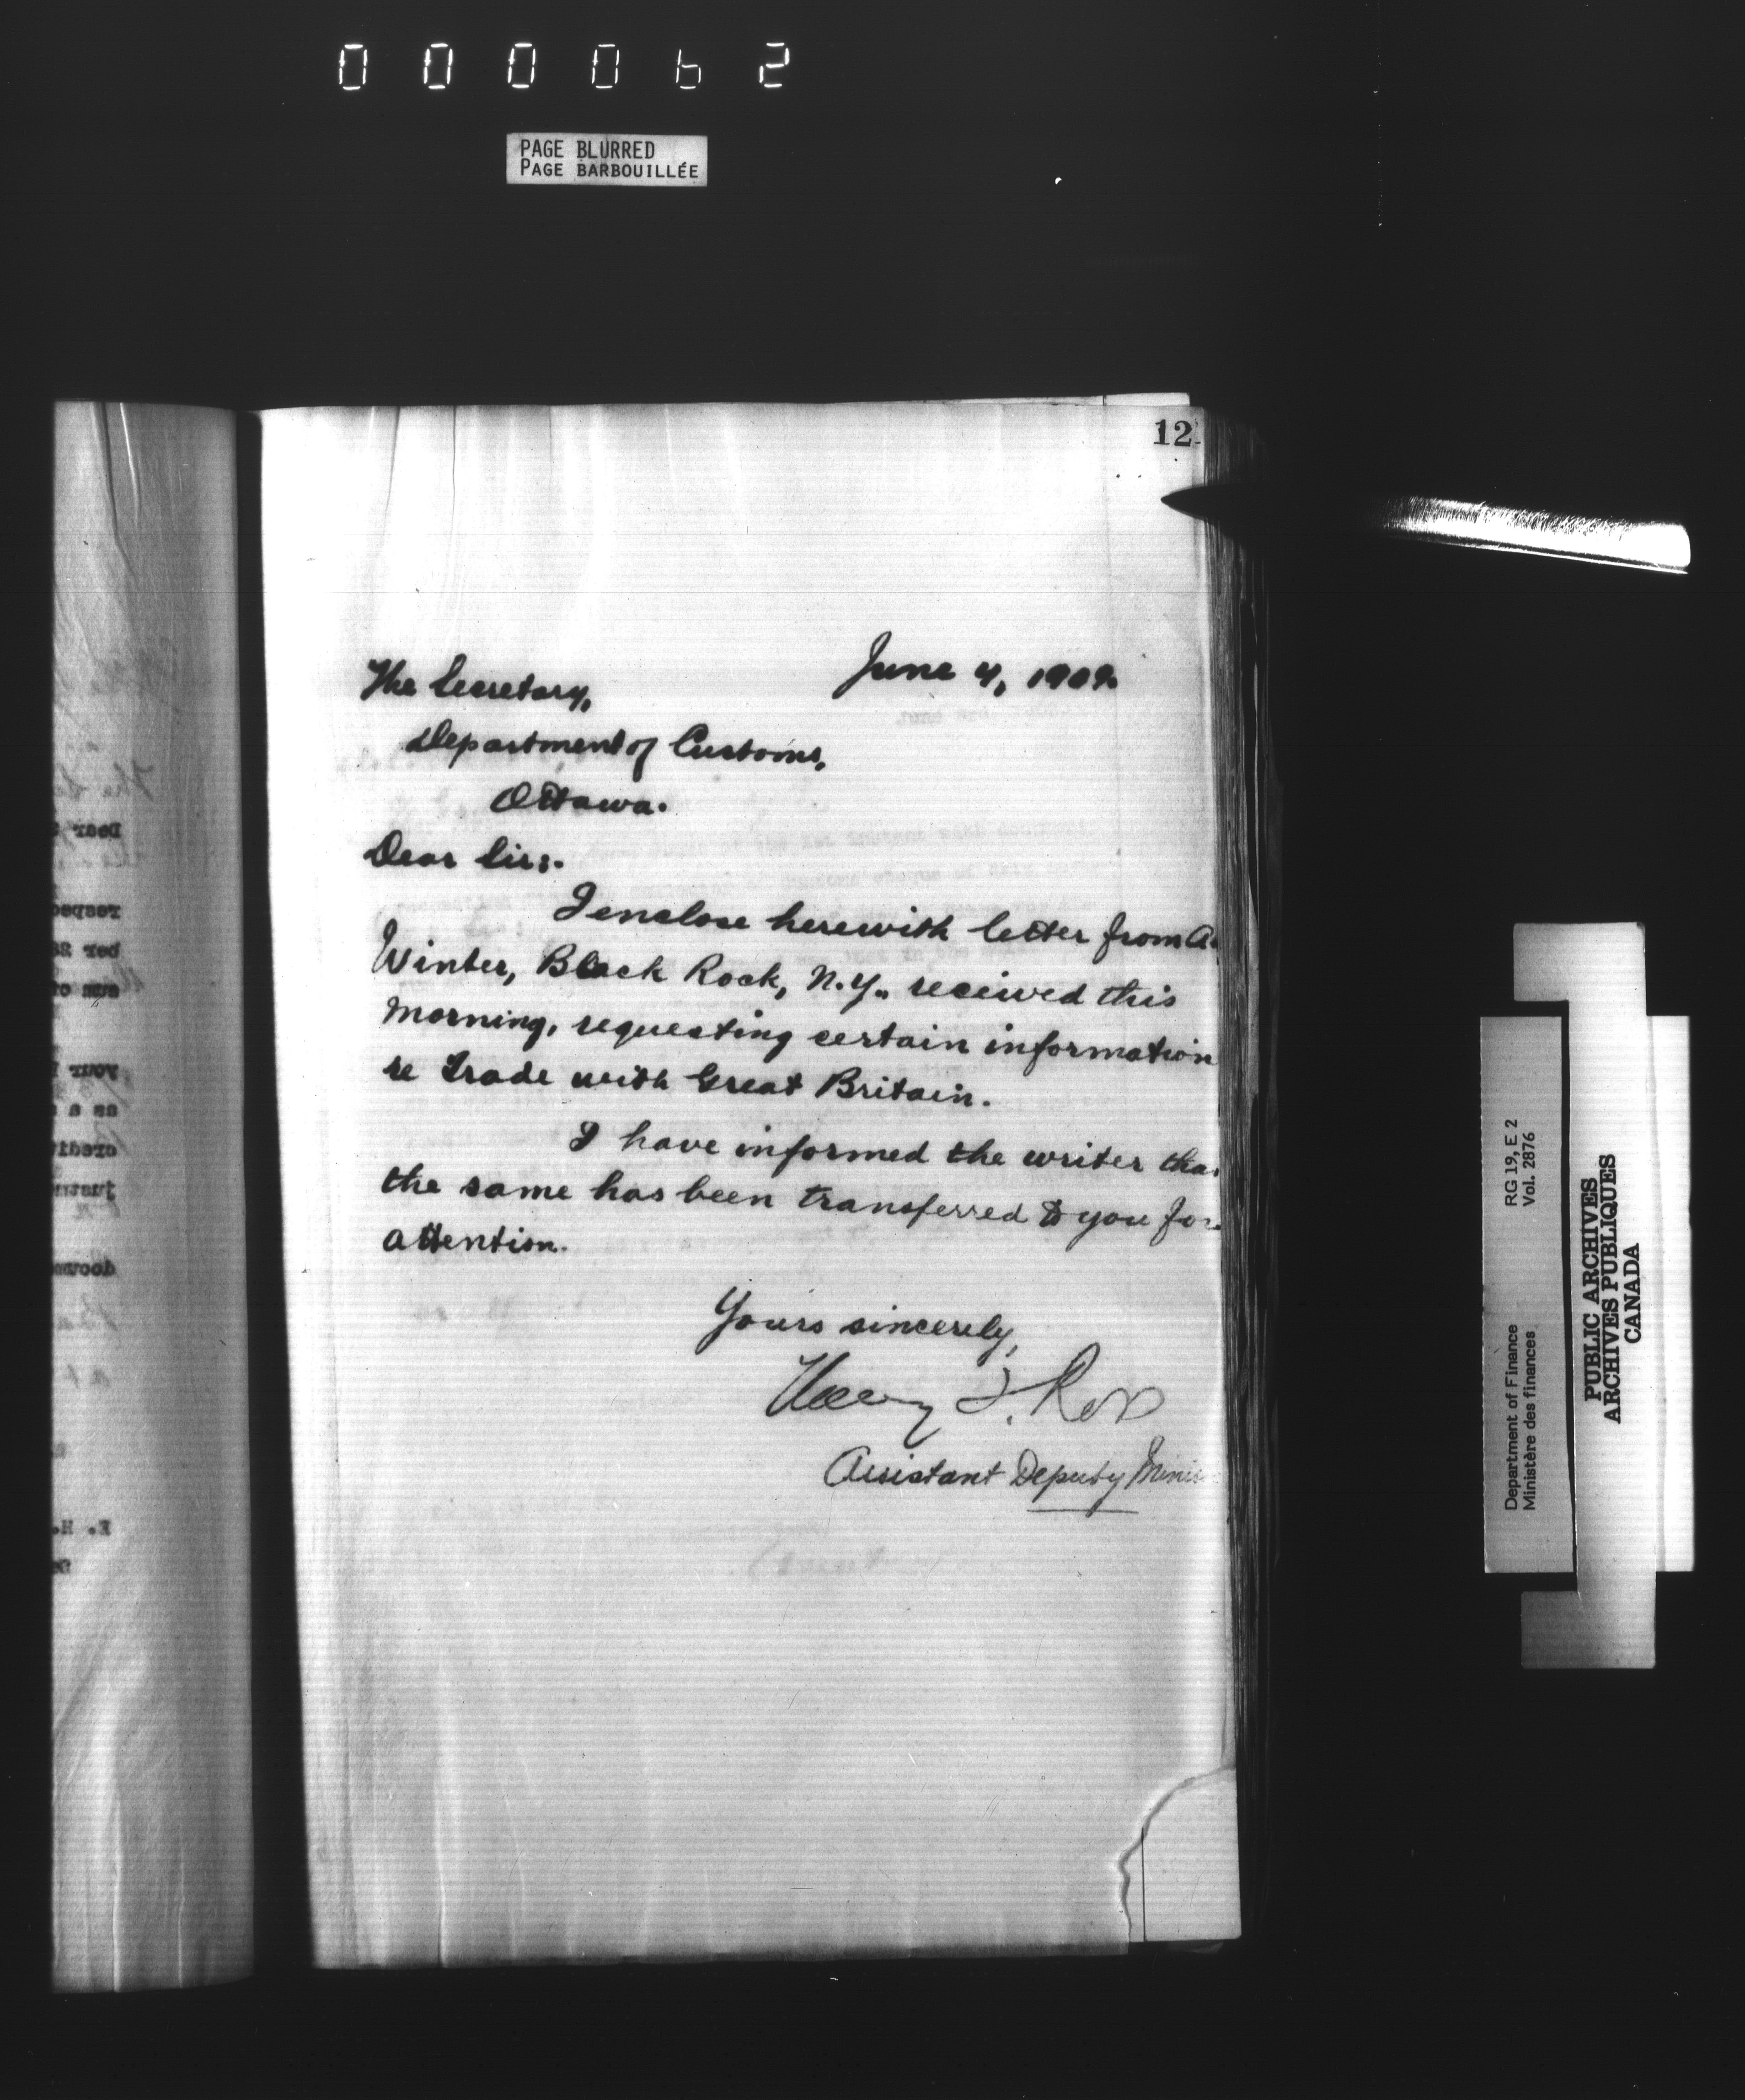 000062
PAGE BLURRED
PAGE BARBOUILLÉE
12
June 4, 1909.
The Secretary,
Department of Customs,
Ottawa.
Dear Sir:-
I enclose herewith letter from A.
Winter, Black Rock, N.Y., received this
morning, requesting certain information
re trade with Great Britain.
I have informed the writer tha
the same has been transferred to you for
attention.
Yours sincerely,
Henry T. Ross
Assistant Deputy Minis
Department of Finance RG 19, E 2
Ministère des finances Vol. 2876
PUBLIC ARCHIVES
ARCHIVES PUBLIQUES
CANADA